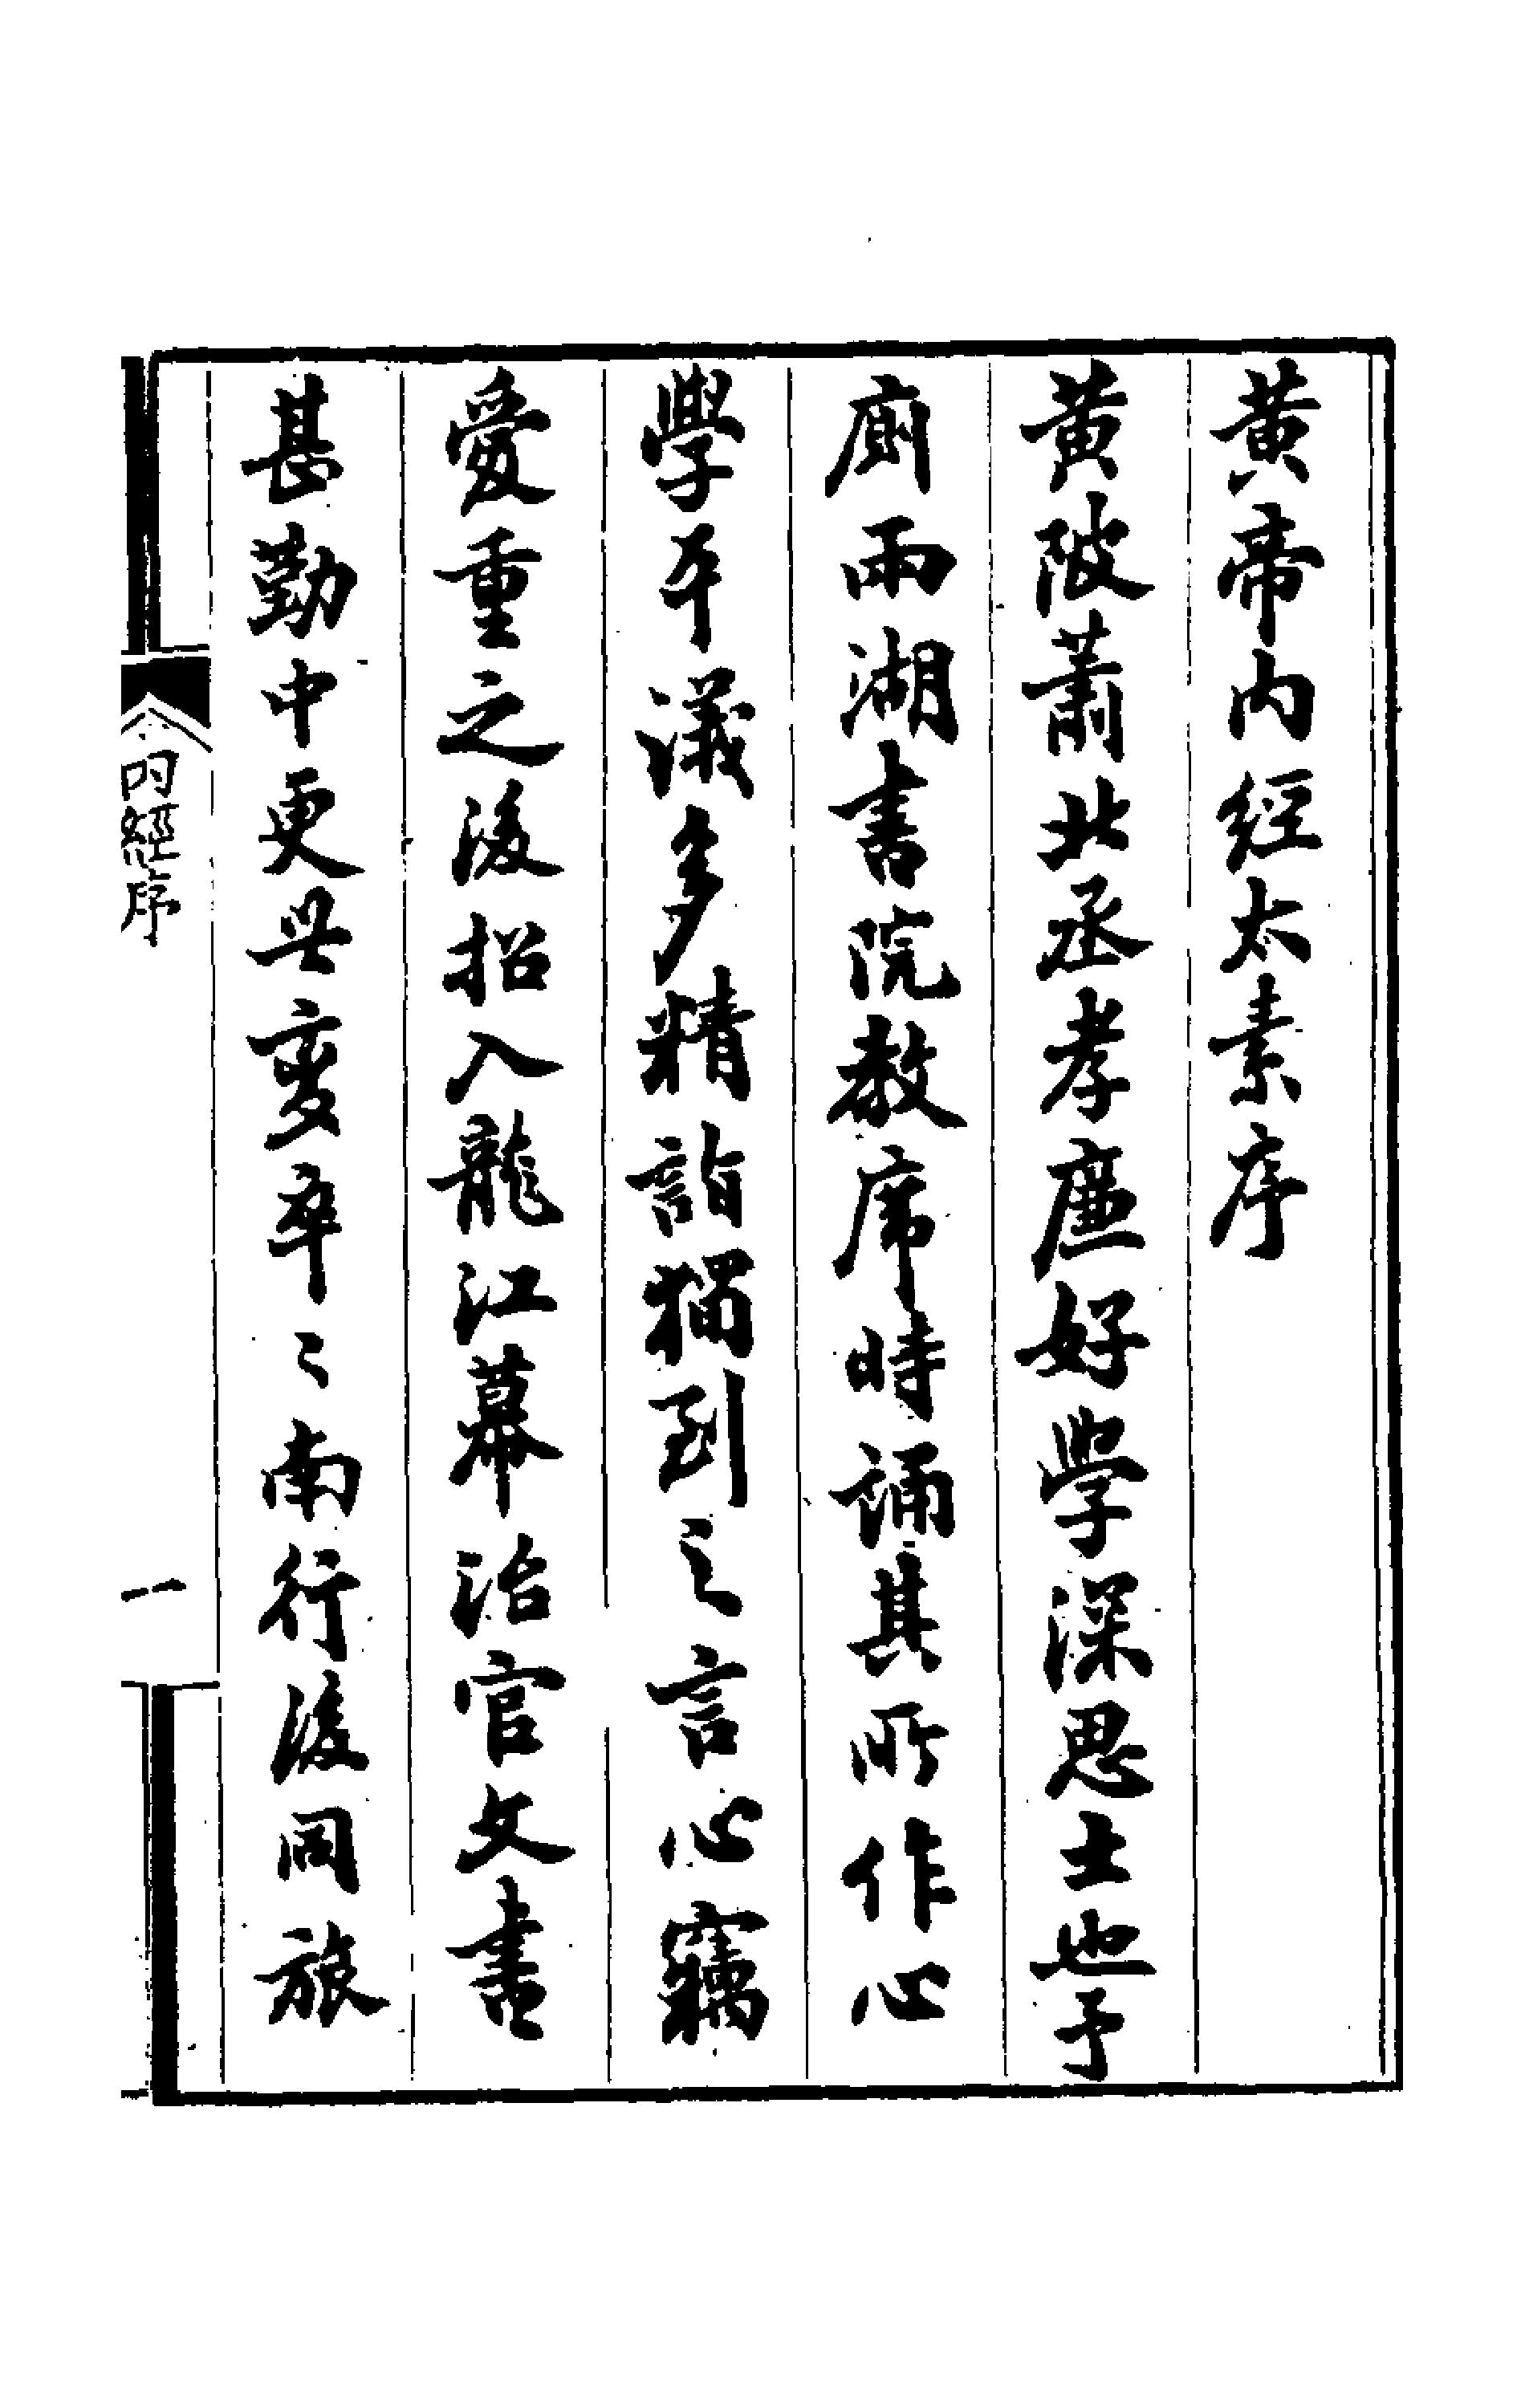 黃帝內經太素序
黃陂蕭北丞孝廉好學深思士也予
廁兩湖書院教席時誦其所作心
學平議多精詣獨到之言心竊
愛重之後招入龍江幕治官文書
甚勤中更世變卒〻南行後同旅
內經序
一